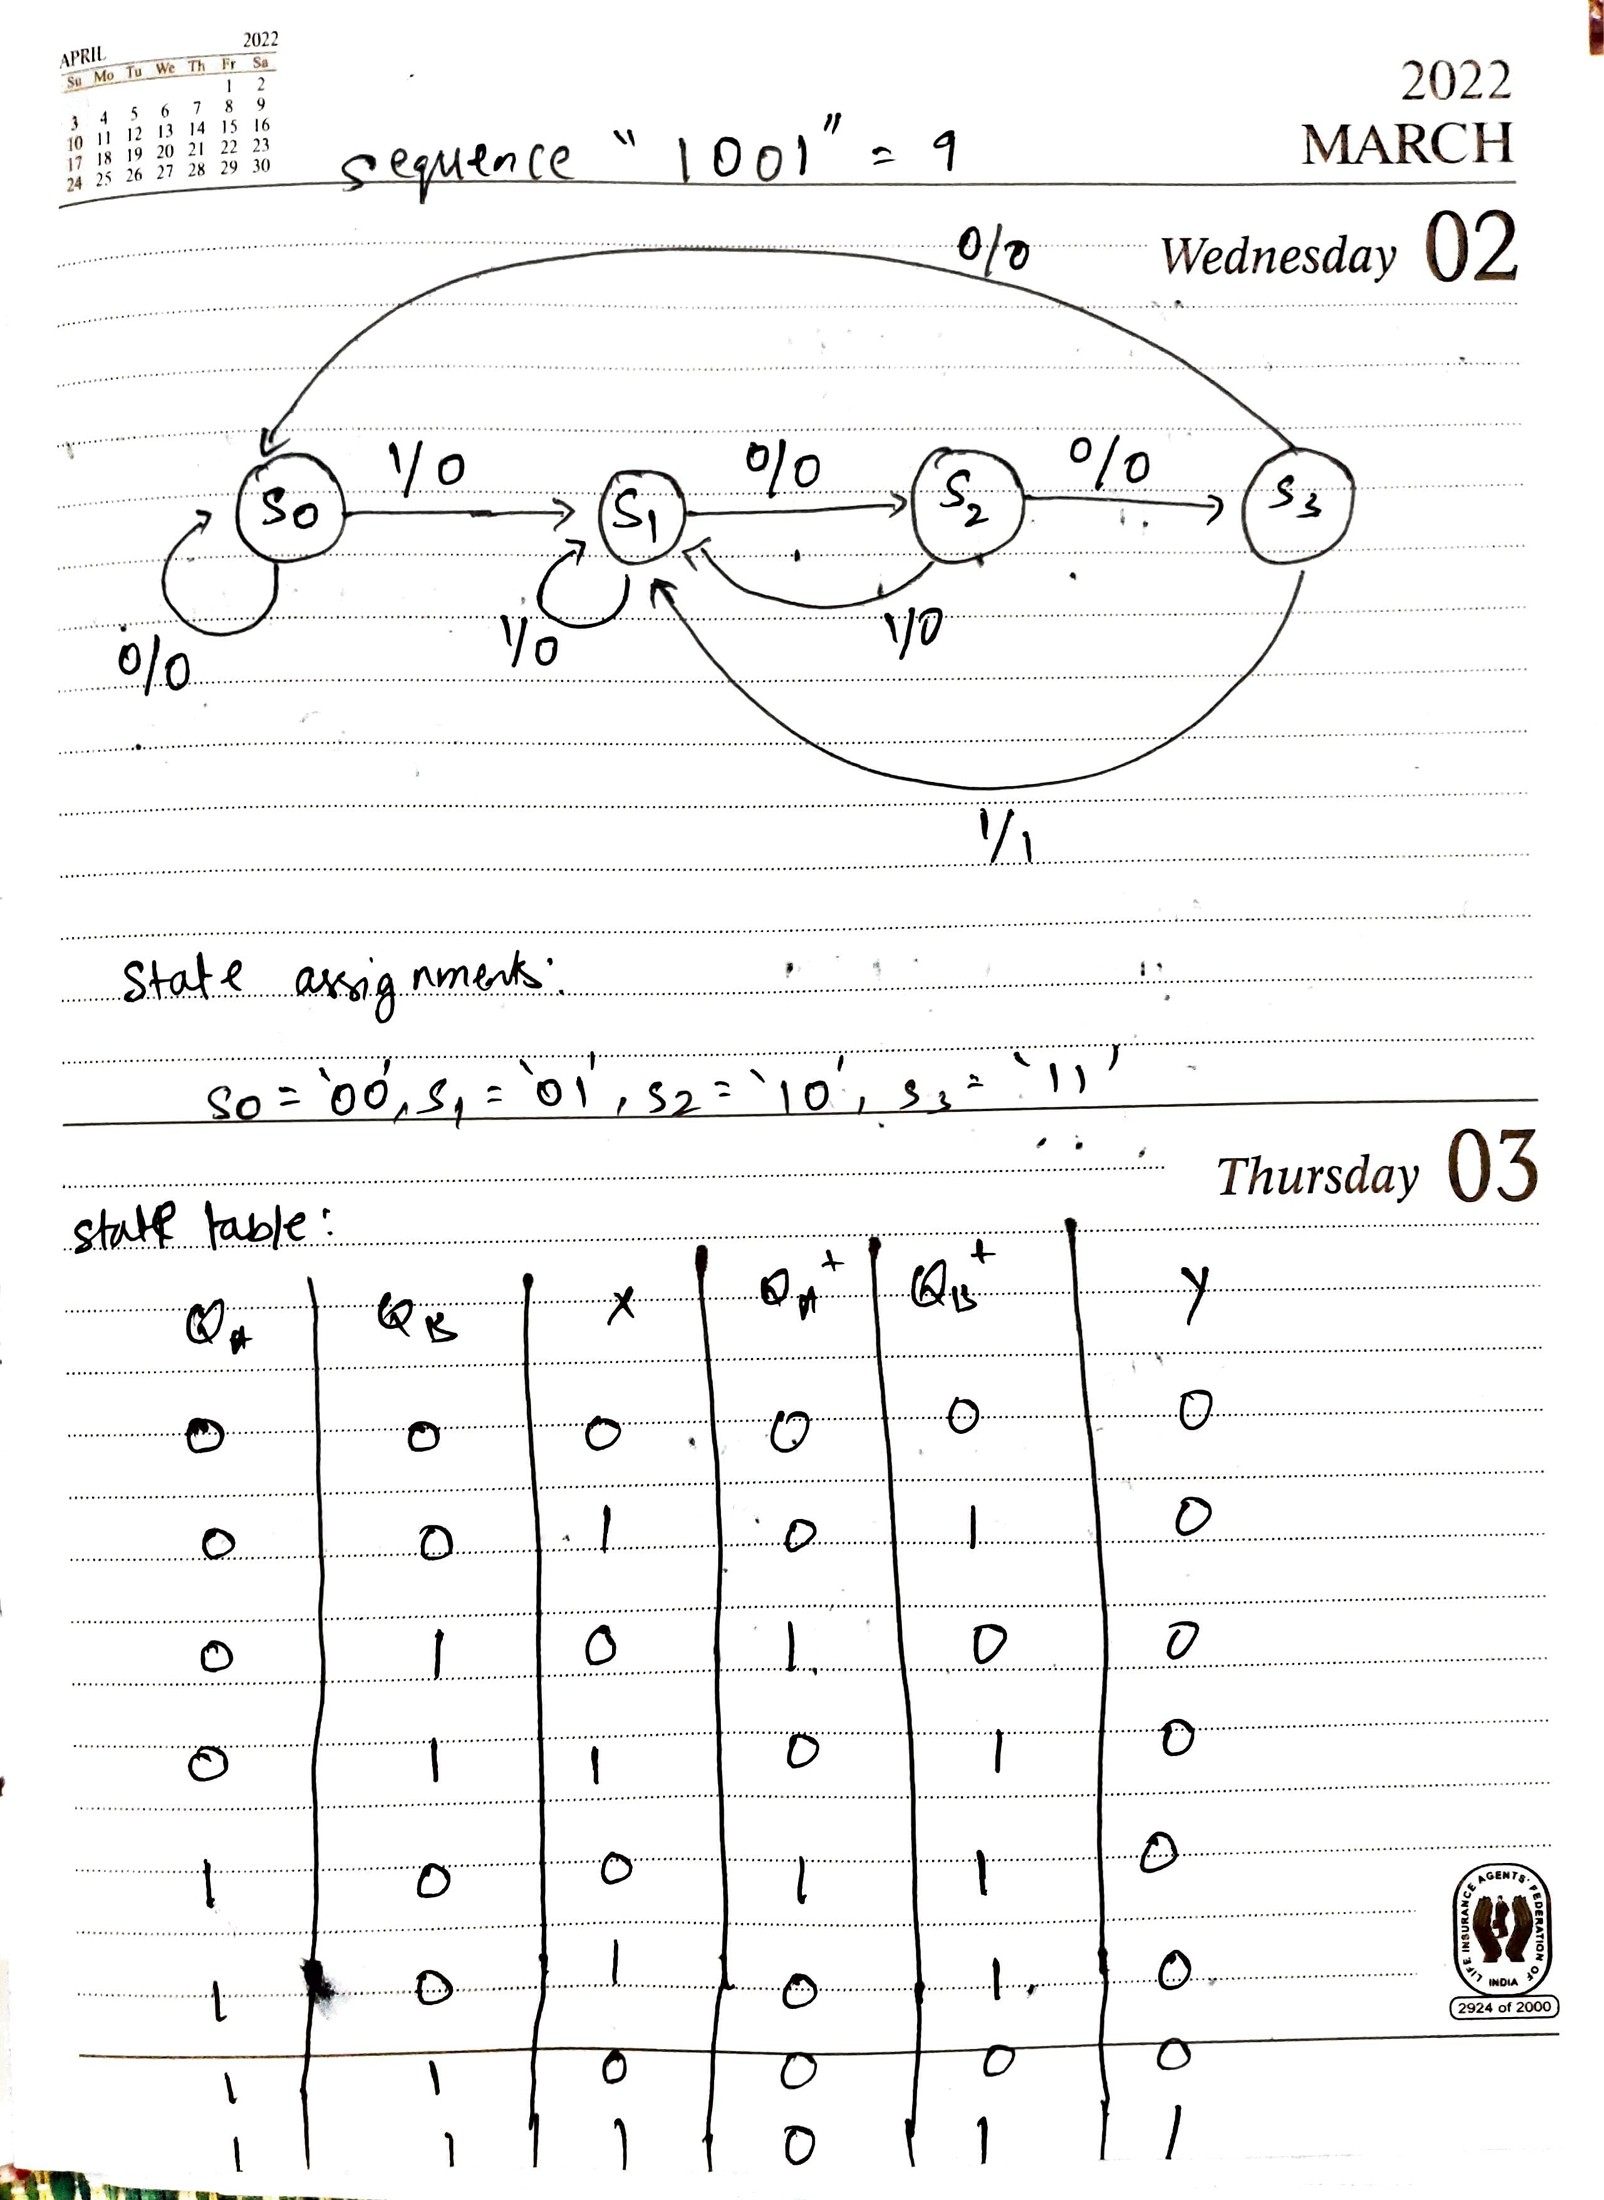 APRIL 2022
Su Mo Tu We Th Fr Sa
1 2
3 4 5 6 7 8 9
10 11 12 13 14 15 16
17 18 19 20 21 22 23
24 25 26 27 28 29 30
2022
MARCH
sequence "1001" = 9
Wednesday 02
0/0
1/0 0/0 0/0
S0 S1 S2 S3
0/0 1/0 1/0
1/1
State assignments:
S0 = '00', S1 = '01', S2 = '10', S3 = '11'
Thursday 03
state table:
QA QB X QA+ QB+ Y
0 0 0 0 0 0
0 0 1 0 1 0
0 1 0 1 0 0
0 1 1 0 1 0
1 0 0 1 1 0
1 0 1 0 1 0
1 1 0 0 0 0
1 1 1 0 1 1
LIFE INSURANCE AGENTS' FEDERATION OF INDIA
2924 of 2000